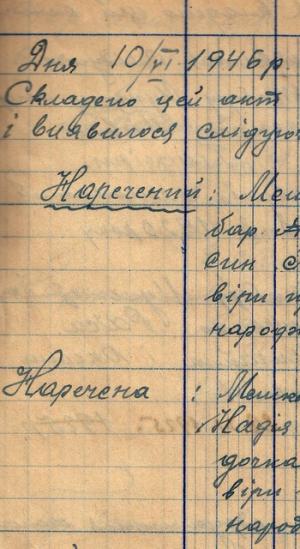 Дня 10/VI 1946 р.
Складено цей акт
і виявилося слідую
Наречений : Меш
бар. А
син с
віри п
народж
Наречена : Мешк
Надія
дочка
віри
народ